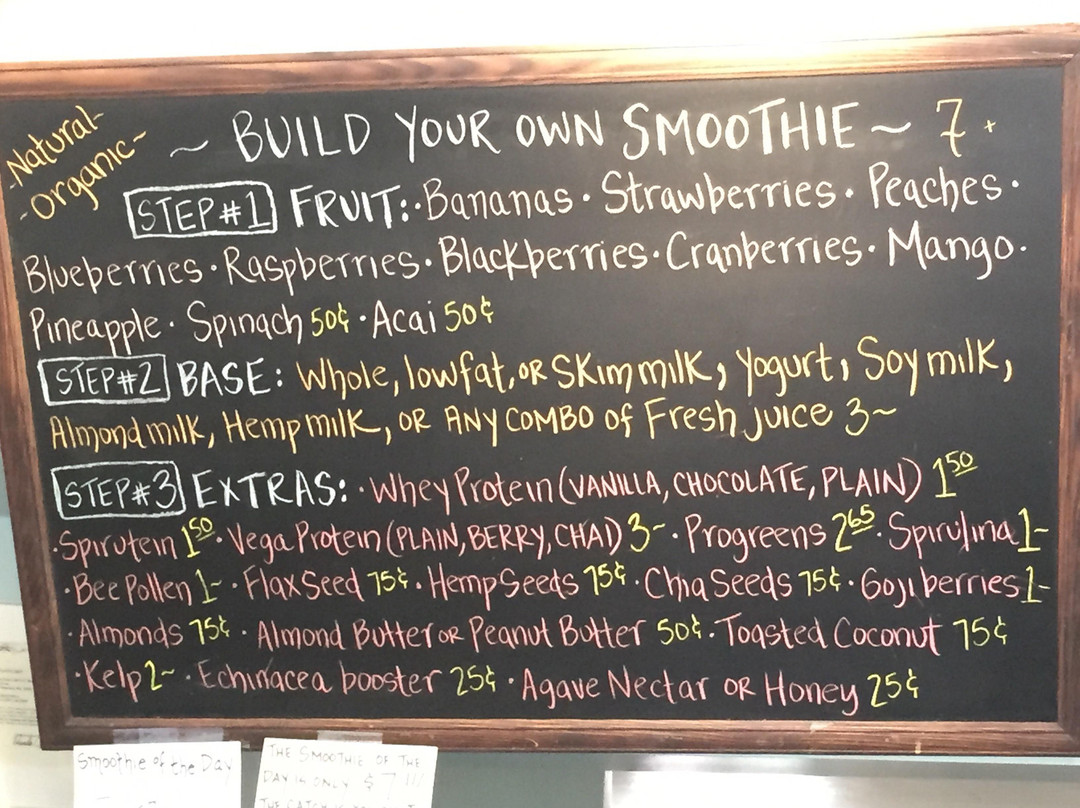 -Natural-
-Organic-
~ BUILD YOUR OWN SMOOTHIE ~ 7+
STEP#1 FRUIT: · Bananas · Strawberries · Peaches ·
Blueberries · Raspberries · Blackberries · Cranberries · Mango ·
Pineapple · Spinach 50¢ · Acai 50¢
STEP#2 BASE: Whole, lowfat, OR SKim milk, yogurt, Soy milk,
Almond milk, Hemp milk, OR ANY COMBO of Fresh juice 3~
STEP#3 EXTRAS: · Whey Protein (VANILLA, CHOCOLATE, PLAIN) 1 50
· Spirutein 1 50 · Vega Protein (PLAIN, BERRY, CHAI) 3~ · Progreens 2 65 · Spirulina 1-
· Bee Pollen 1- · Flax Seed 75¢ · Hemp Seeds 75¢ · Chia Seeds 75¢ · Goji berries 1-
· Almonds 75¢ · Almond Butter OR Peanut Butter 50¢ · Toasted Coconut 75¢
· Kelp 2~ · Echinacea booster 25¢ · Agave Nectar OR Honey 25¢
Smoothie of the Day
THE SMOOTHIE OF THE
DAY is ONLY $7!!!
THE CATCH IS